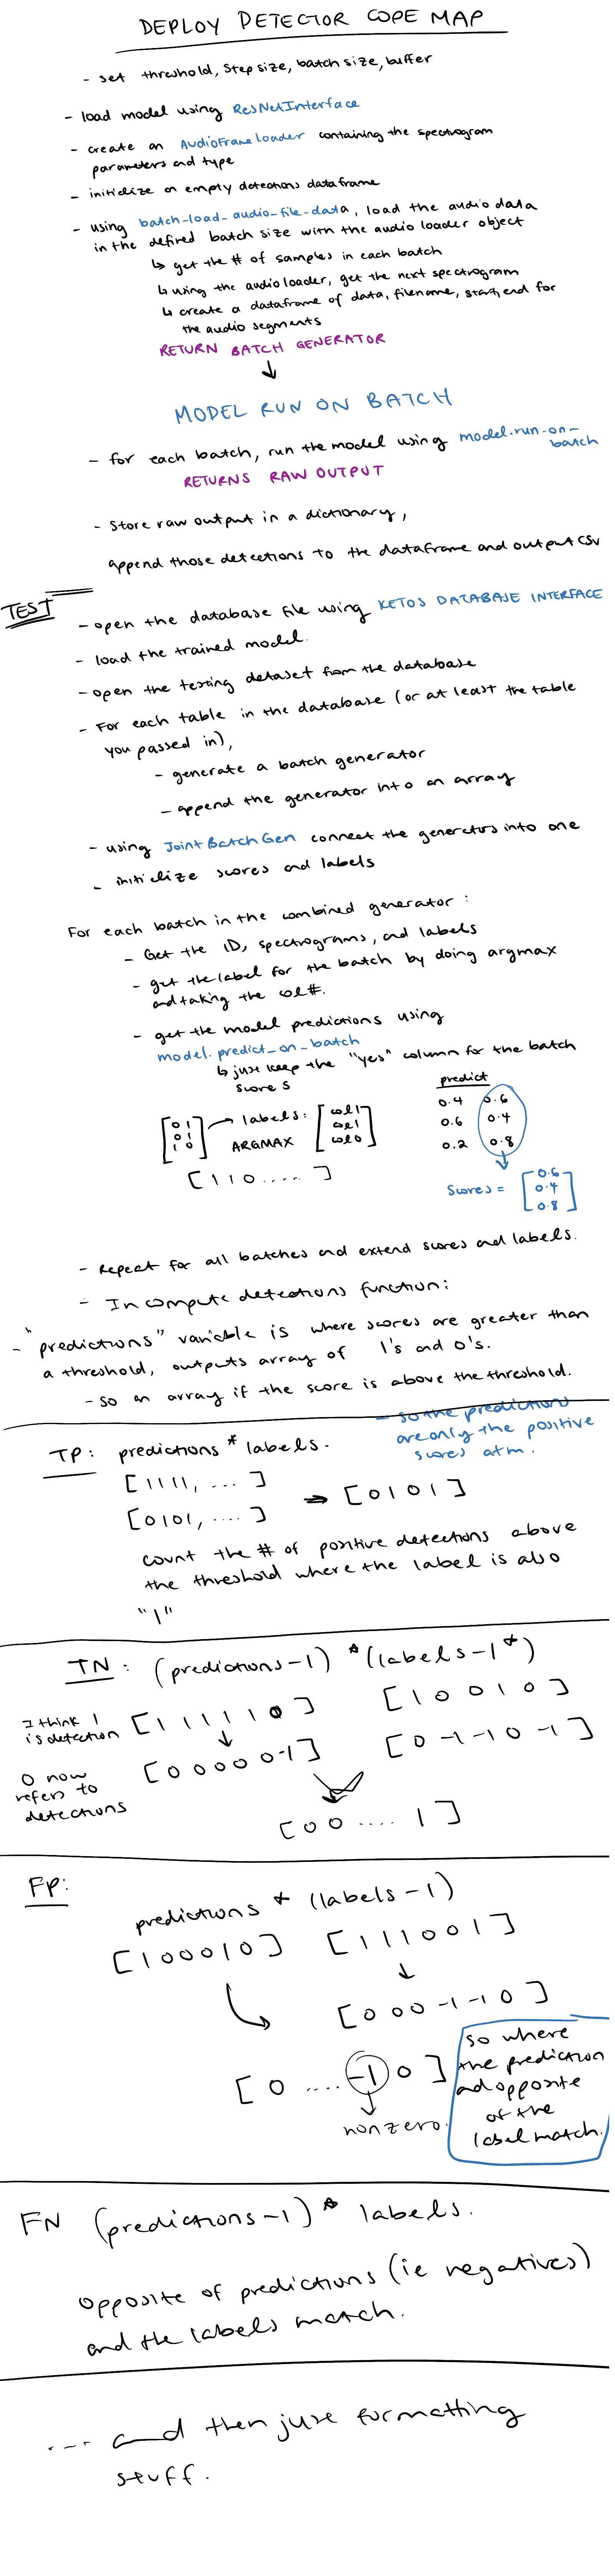 DEPLOY DETECTOR CODE MAP
- set threshold, step size, batch size, buffer
- load model using ResNetInterface
- create an AudioFrameLoader containing the spectrogram
parameters and type
- initialize an empty detections dataframe
- using batch-load_audio_file_data, load the audio data
in the defined batch size with the audio loader object
↳ get the # of samples in each batch
↳ using the audio loader, get the next spectrogram
↳ create a dataframe of data, filename, start, end for
the audio segments
RETURN BATCH GENERATOR
↓
MODEL RUN ON BATCH
- for each batch, run the model using model.run-on-
batch
RETURNS RAW OUTPUT
- Store raw output in a dictionary,
append those detections to the dataframe and output CSV
TEST
- open the database file using KETOS DATABASE INTERFACE
- load the trained model.
- open the testing dataset from the database
- For each table in the database (or at least the table
you passed in),
- generate a batch generator
- append the generator into an array
- using JointBatchGen connect the generators into one
- initialize scores and labels
For each batch in the combined generator:
- Get the ID, spectrograms, and labels
- get the label for the batch by doing argmax
and taking the col#.
- get the model predictions using
model.predict_on_batch
↳ just keep the "yes" column for the batch
scores
predict
0.4 0.6
0.6 0.4
0.2 0.8
[0 1
0 1
1 0] → labels: [col1
col1
col0]
ARGMAX
[110.....]
scores = [0.6
0.4
0.8]
- Repeat for all batches and extend scores and labels.
- In compute detections function:
- "predictions" variable is where scores are greater than
a threshold, outputs array of 1's and 0's.
- so an array if the score is above the threshold.
- so the predictions
are only the positive
scores atm.
TP: predictions * labels.
[1111, ...]
[0101, ....] → [0101]
count the # of positive detections above
the threshold where the label is also
"1"
TN: (predictions-1) * (labels-1*)
I think 1
is detection
[1 1 1 1 1 0] [1 0 0 1 0]
↓
0 now
refers to
detections
[0 0 0 0 0 -1] [0 -1 -1 0 -1]
[0 0 .... 1]
FP:
predictions * (labels-1)
[100010] [111001]
↓
[0 0 0 -1 -1 0]
[0 .... -1 0]
↓
nonzero.
so where
the prediction
and opposite
of the
label match.
FN (predictions-1) * labels.
opposite of predictions (ie negatives)
and the labels match.
... and then just formatting
stuff.